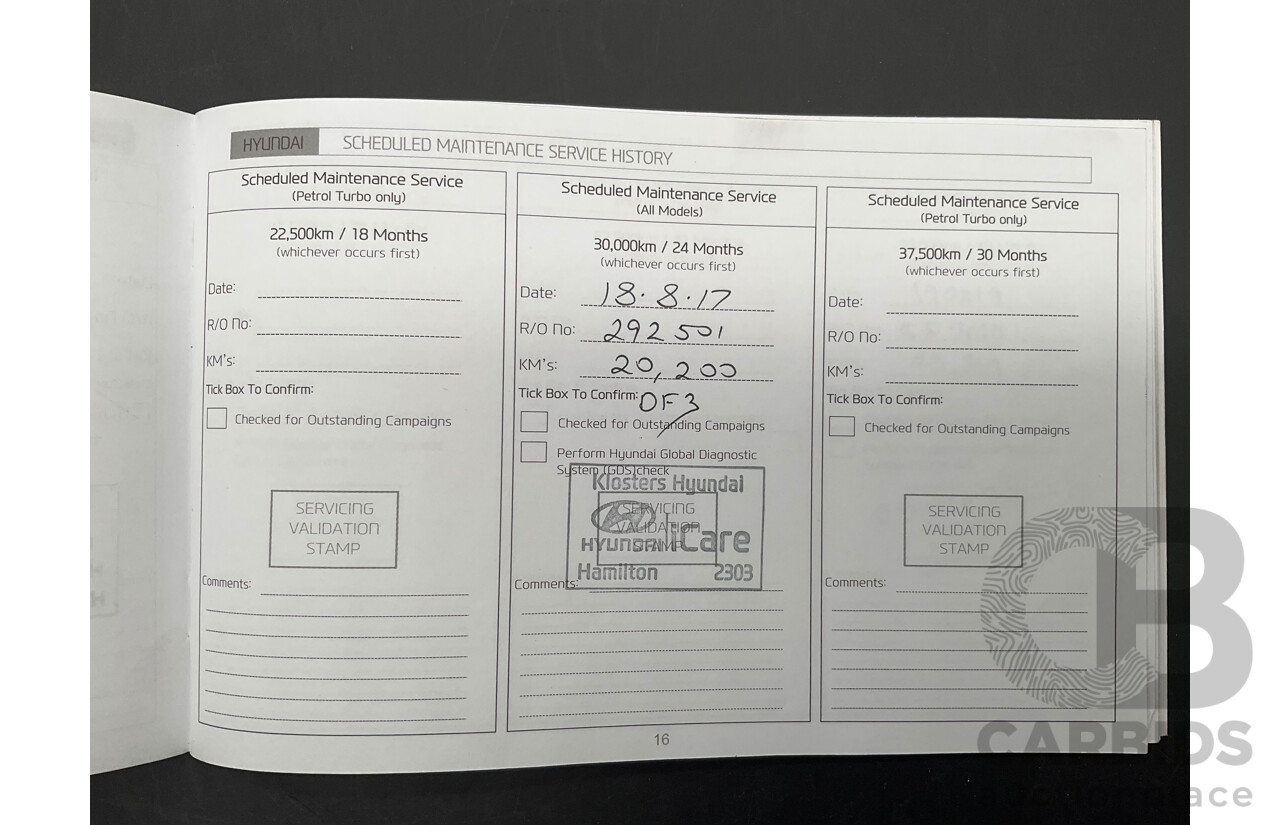 HYUNDAI SCHEDULED MAINTENANCE SERVICE HISTORY
Scheduled Maintenance Service
(Petrol Turbo only)
22,500km / 18 Months
(whichever occurs first)
Date:
R/O No:
KM's:
Tick Box To Confirm:
Checked for Outstanding Campaigns
SERVICING
VALIDATION
STAMP
Comments:
Scheduled Maintenance Service
(All Models)
30,000km / 24 Months
(whichever occurs first)
Date: 18.8.17
R/O No: 292501
KM's: 20,200
Tick Box To Confirm: OF3
Checked for Outstanding Campaigns
Perform Hyundai Global Diagnostic
System (GDS)check
Klosters Hyundai
SERVICING
VALIDATION
STAMP
HYUNDAI iCare
Hamilton 2303
Comments:
Scheduled Maintenance Service
(Petrol Turbo only)
37,500km / 30 Months
(whichever occurs first)
Date:
R/O No:
KM's:
Tick Box To Confirm:
Checked for Outstanding Campaigns
SERVICING
VALIDATION
STAMP
Comments:
16
CB
CARBIDS